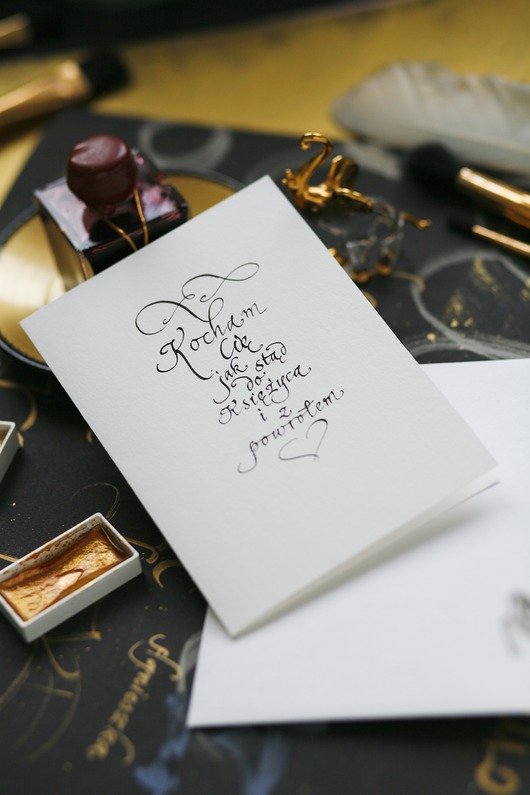 Kocham
Cię
jak stąd
do
Księżyca
i z
powrotem
Agnieszka